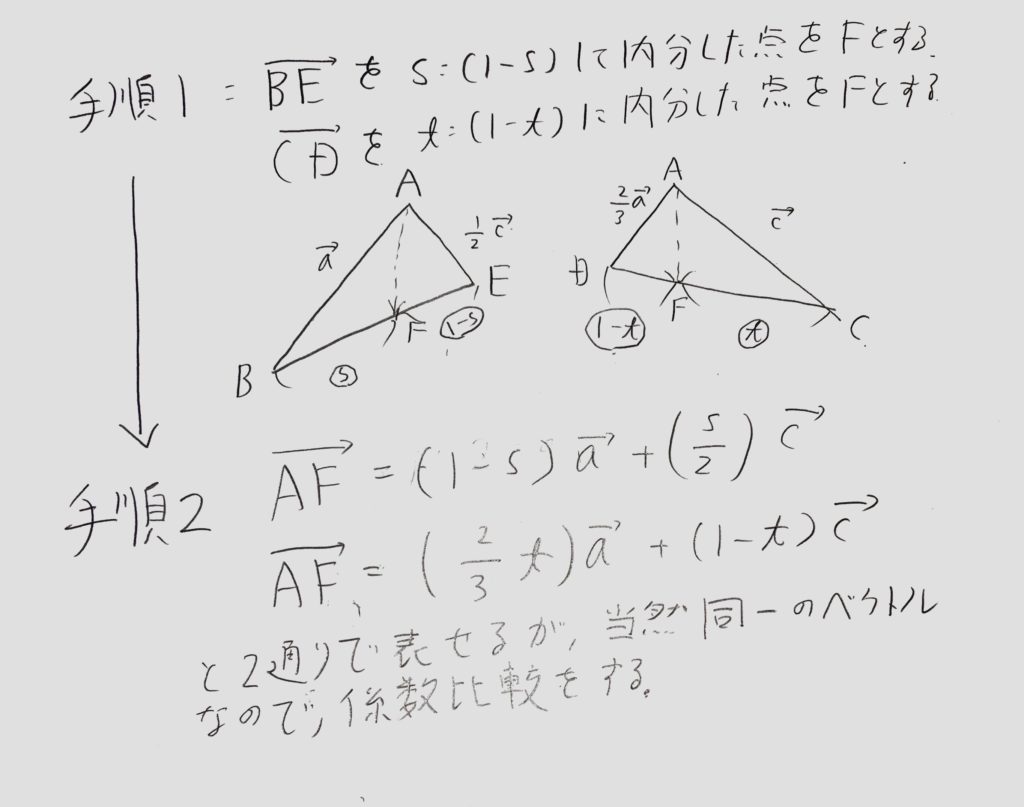 手順1 : BE→ を s:(1-s) に内分した点を Fとする.
CD→ を t:(1-t) に内分した点をFとする
A
a→
1/2 c→
E
F
1-s
B
s
A
2/3 a→
c→
D
F
1-t
t
C
手順2
AF→ = (1-s) a→ + (s/2) c→
AF→ = (2/3 t) a→ + (1-t) c→
と2通りで表せるが, 当然同一のベクトル
なので, 係数比較をする.